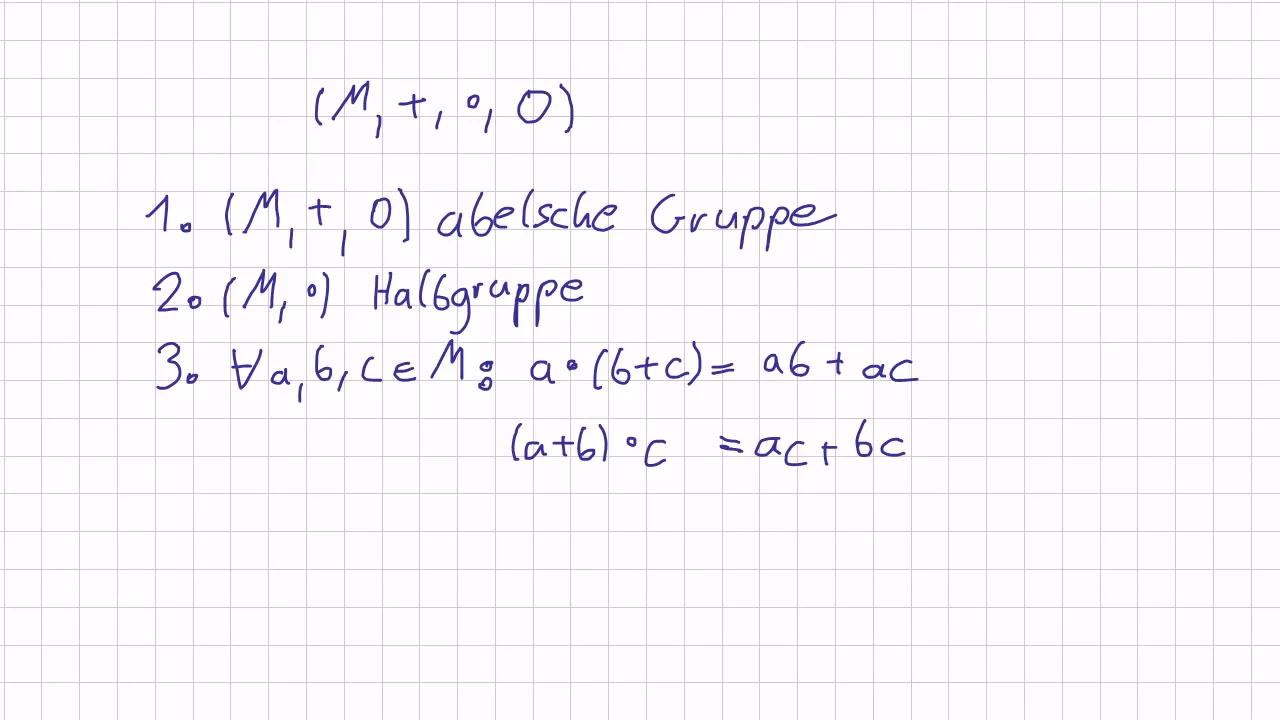 (M, +, ∘, 0)
1. (M, +, 0) abelsche Gruppe
2. (M, ∘) Halbgruppe
3. ∀a, b, c ∈ M: a∘(b+c) = ab + ac
(a+b)∘c = ac + bc